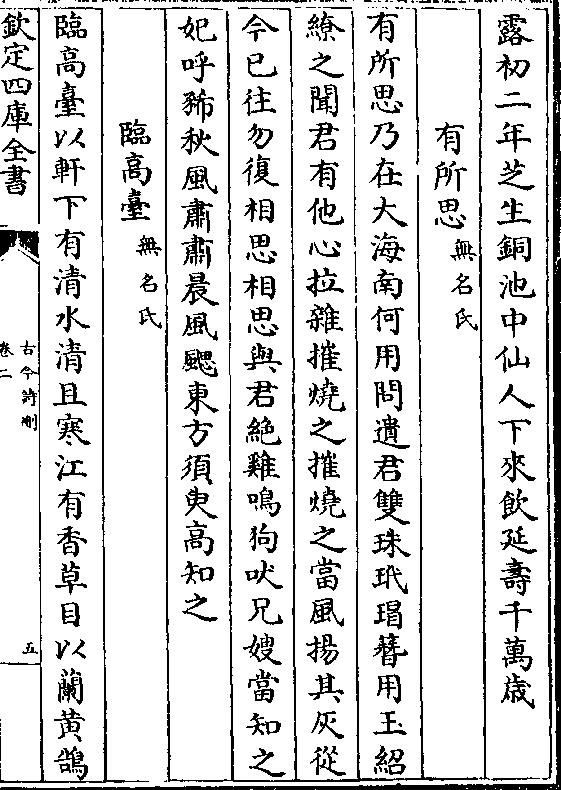 露初二年芝生銅池中仙人下來飲延壽千萬歳
有所思無名氏
有所思乃在大海南何用問遺君雙珠玳瑁簪用玉紹
繚之聞君有他心拉雜摧燒之摧燒之當風揚其灰從
今已往勿復相思相思與君絶雞鳴狗吠兄嫂當知之
妃呼豨秋風肅肅晨風颸東方須臾高知之
臨高臺無名氏
臨高臺以軒下有清水清且寒江有香草目以蘭黄鵠
欽定四庫全書
古今詩刪
卷二
五